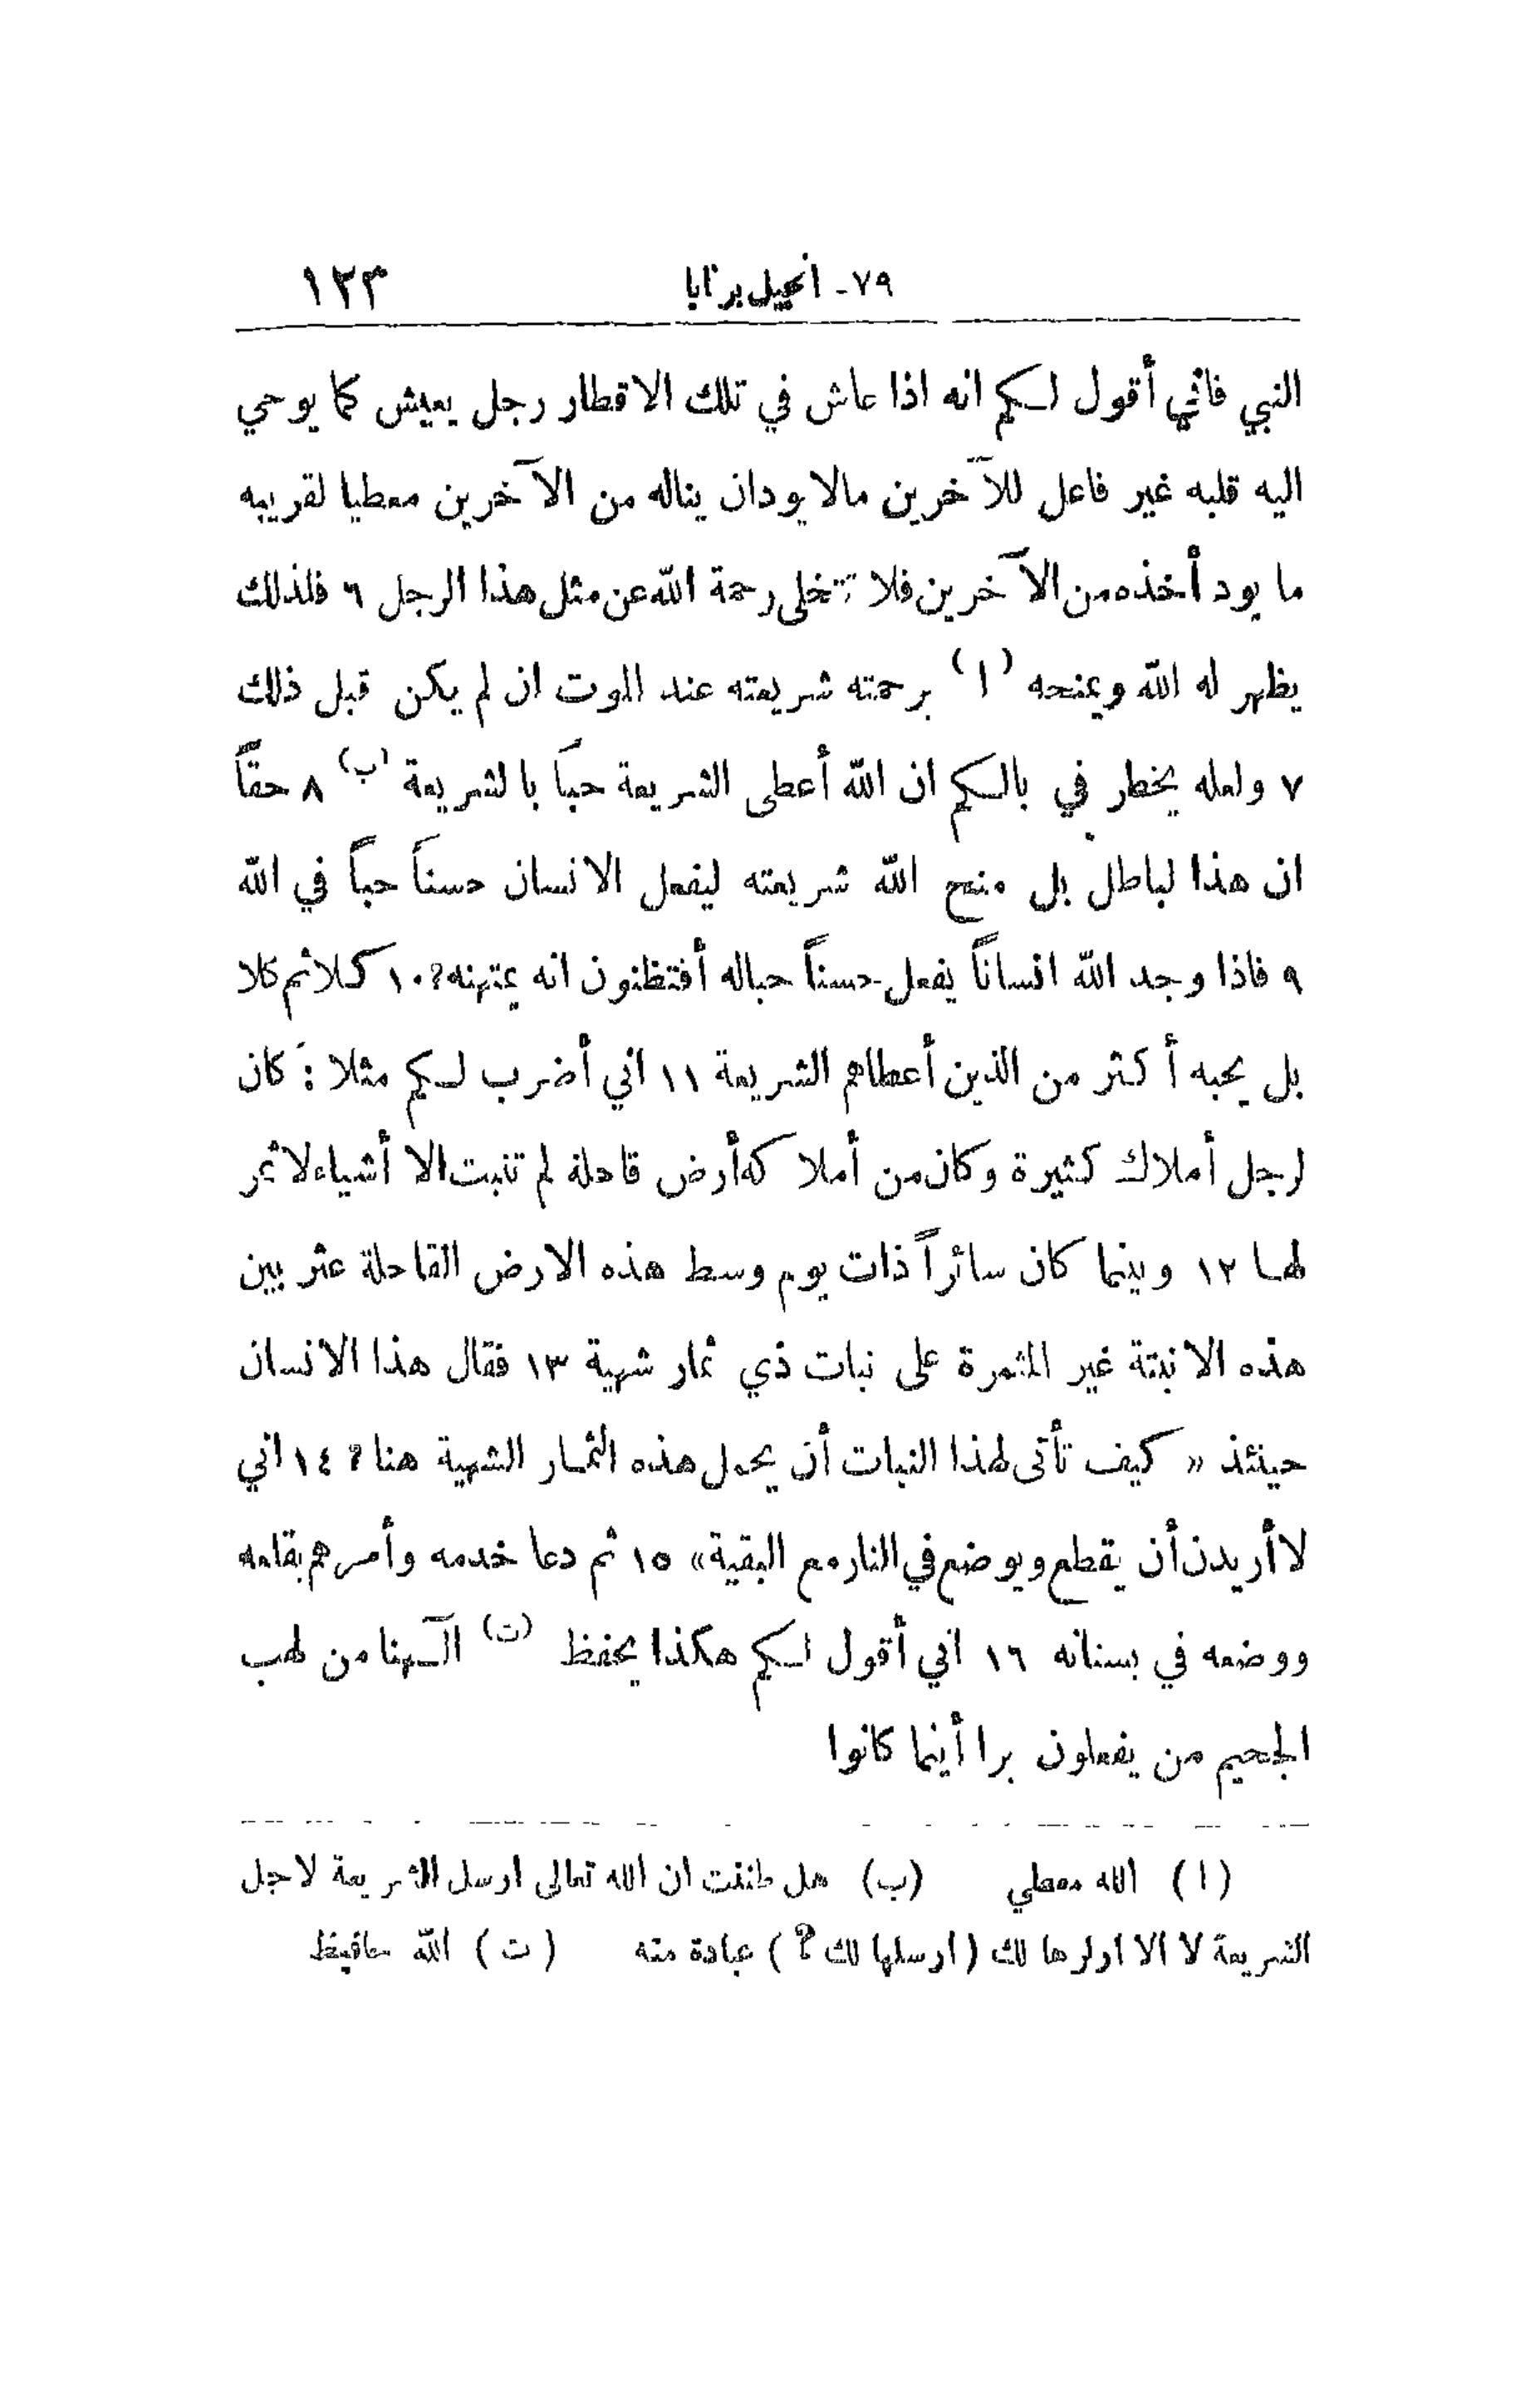 ٧٩- انجيل برنابا ١٢٣
النبي فانني أقول لكم انه اذا عاش في تلك الاقطار رجل يعيش كما يوحي
اليه قلبه غير فاعل للآخرين مالا يودان يناله من الآخرين معطيا لقريبه
ما يود أخذه من الآخرين فلا تتخلى رحمة الله عن مثل هذا الرجل ٦ فلذلك
يظهر له الله ويمنحه (ا) برحمته شريعته عند الموت ان لم يكن قبل ذلك
٧ ولعله يخطر في بالكم ان الله أعطى الشريعة حباً بالشريعة (ب) ٨ حقاً
ان هذا لباطل بل منح الله شريعته ليفعل الانسان حسناً حباً في الله
٩ فاذا وجد الله انساناً يفعل حسناً حباله أفتظنون انه يمتهنه؟ ١٠ كلا ثم كلا
بل يحبه أكثر من الذين أعطاهم الشريعة ١١ اني أضرب لكم مثلا : كان
لرجل أملاك كثيرة وكان من أملاكه أرض قاحلة لم تنبت الا أشياء لا ثمر
لها ١٢ وبينما كان سائراً ذات يوم وسط هذه الارض القاحلة عثر بين
هذه الانبتة غير المثمرة على نبات ذي ثمار شهية ١٣ فقال هذا الانسان
حينئذ « كيف تأتى لهذا النبات أن يحمل هذه الثمار الشهية هنا ؟ ١٤ اني
لا أريدن أن يقطع ويوضع في النار مع البقية» ١٥ ثم دعا خدمه وأمرهم بقلعه
ووضعه في بستانه ١٦ اني أقول لكم هكذا يحفظ (ت) الهنا من لهب
الجحيم من يفعلون برا أينما كانوا
(ا) الله معطي (ب) هل ظننت ان الله تعالى ارسل الشريعة لاجل
الشريعة لا الا ارلرها لك (ارسلها لك ؟) عبادة منه (ت) الله حافيظ